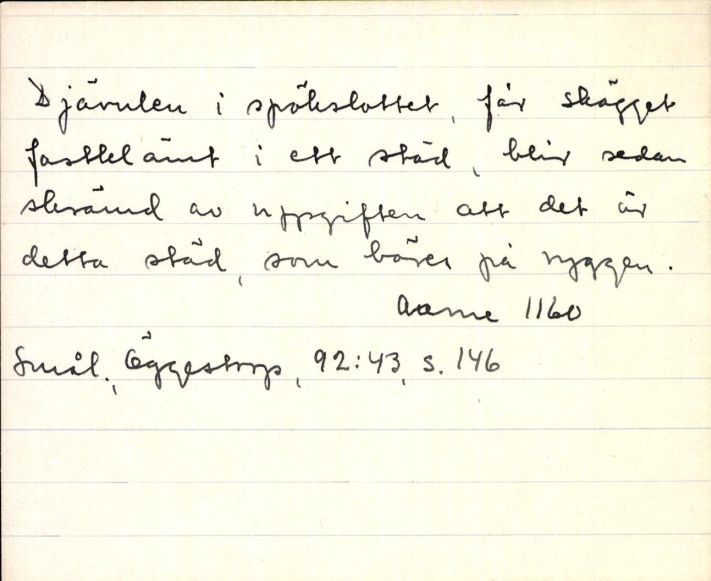 Djävulen i spökslottet, får skägget
fastklämt i ett städ, blir sedan
skrämd av uppgiften att det är
detta städ, som bäres på ryggen.
Aarne 1160
Smål., Öggestorp, 92:43, s. 146